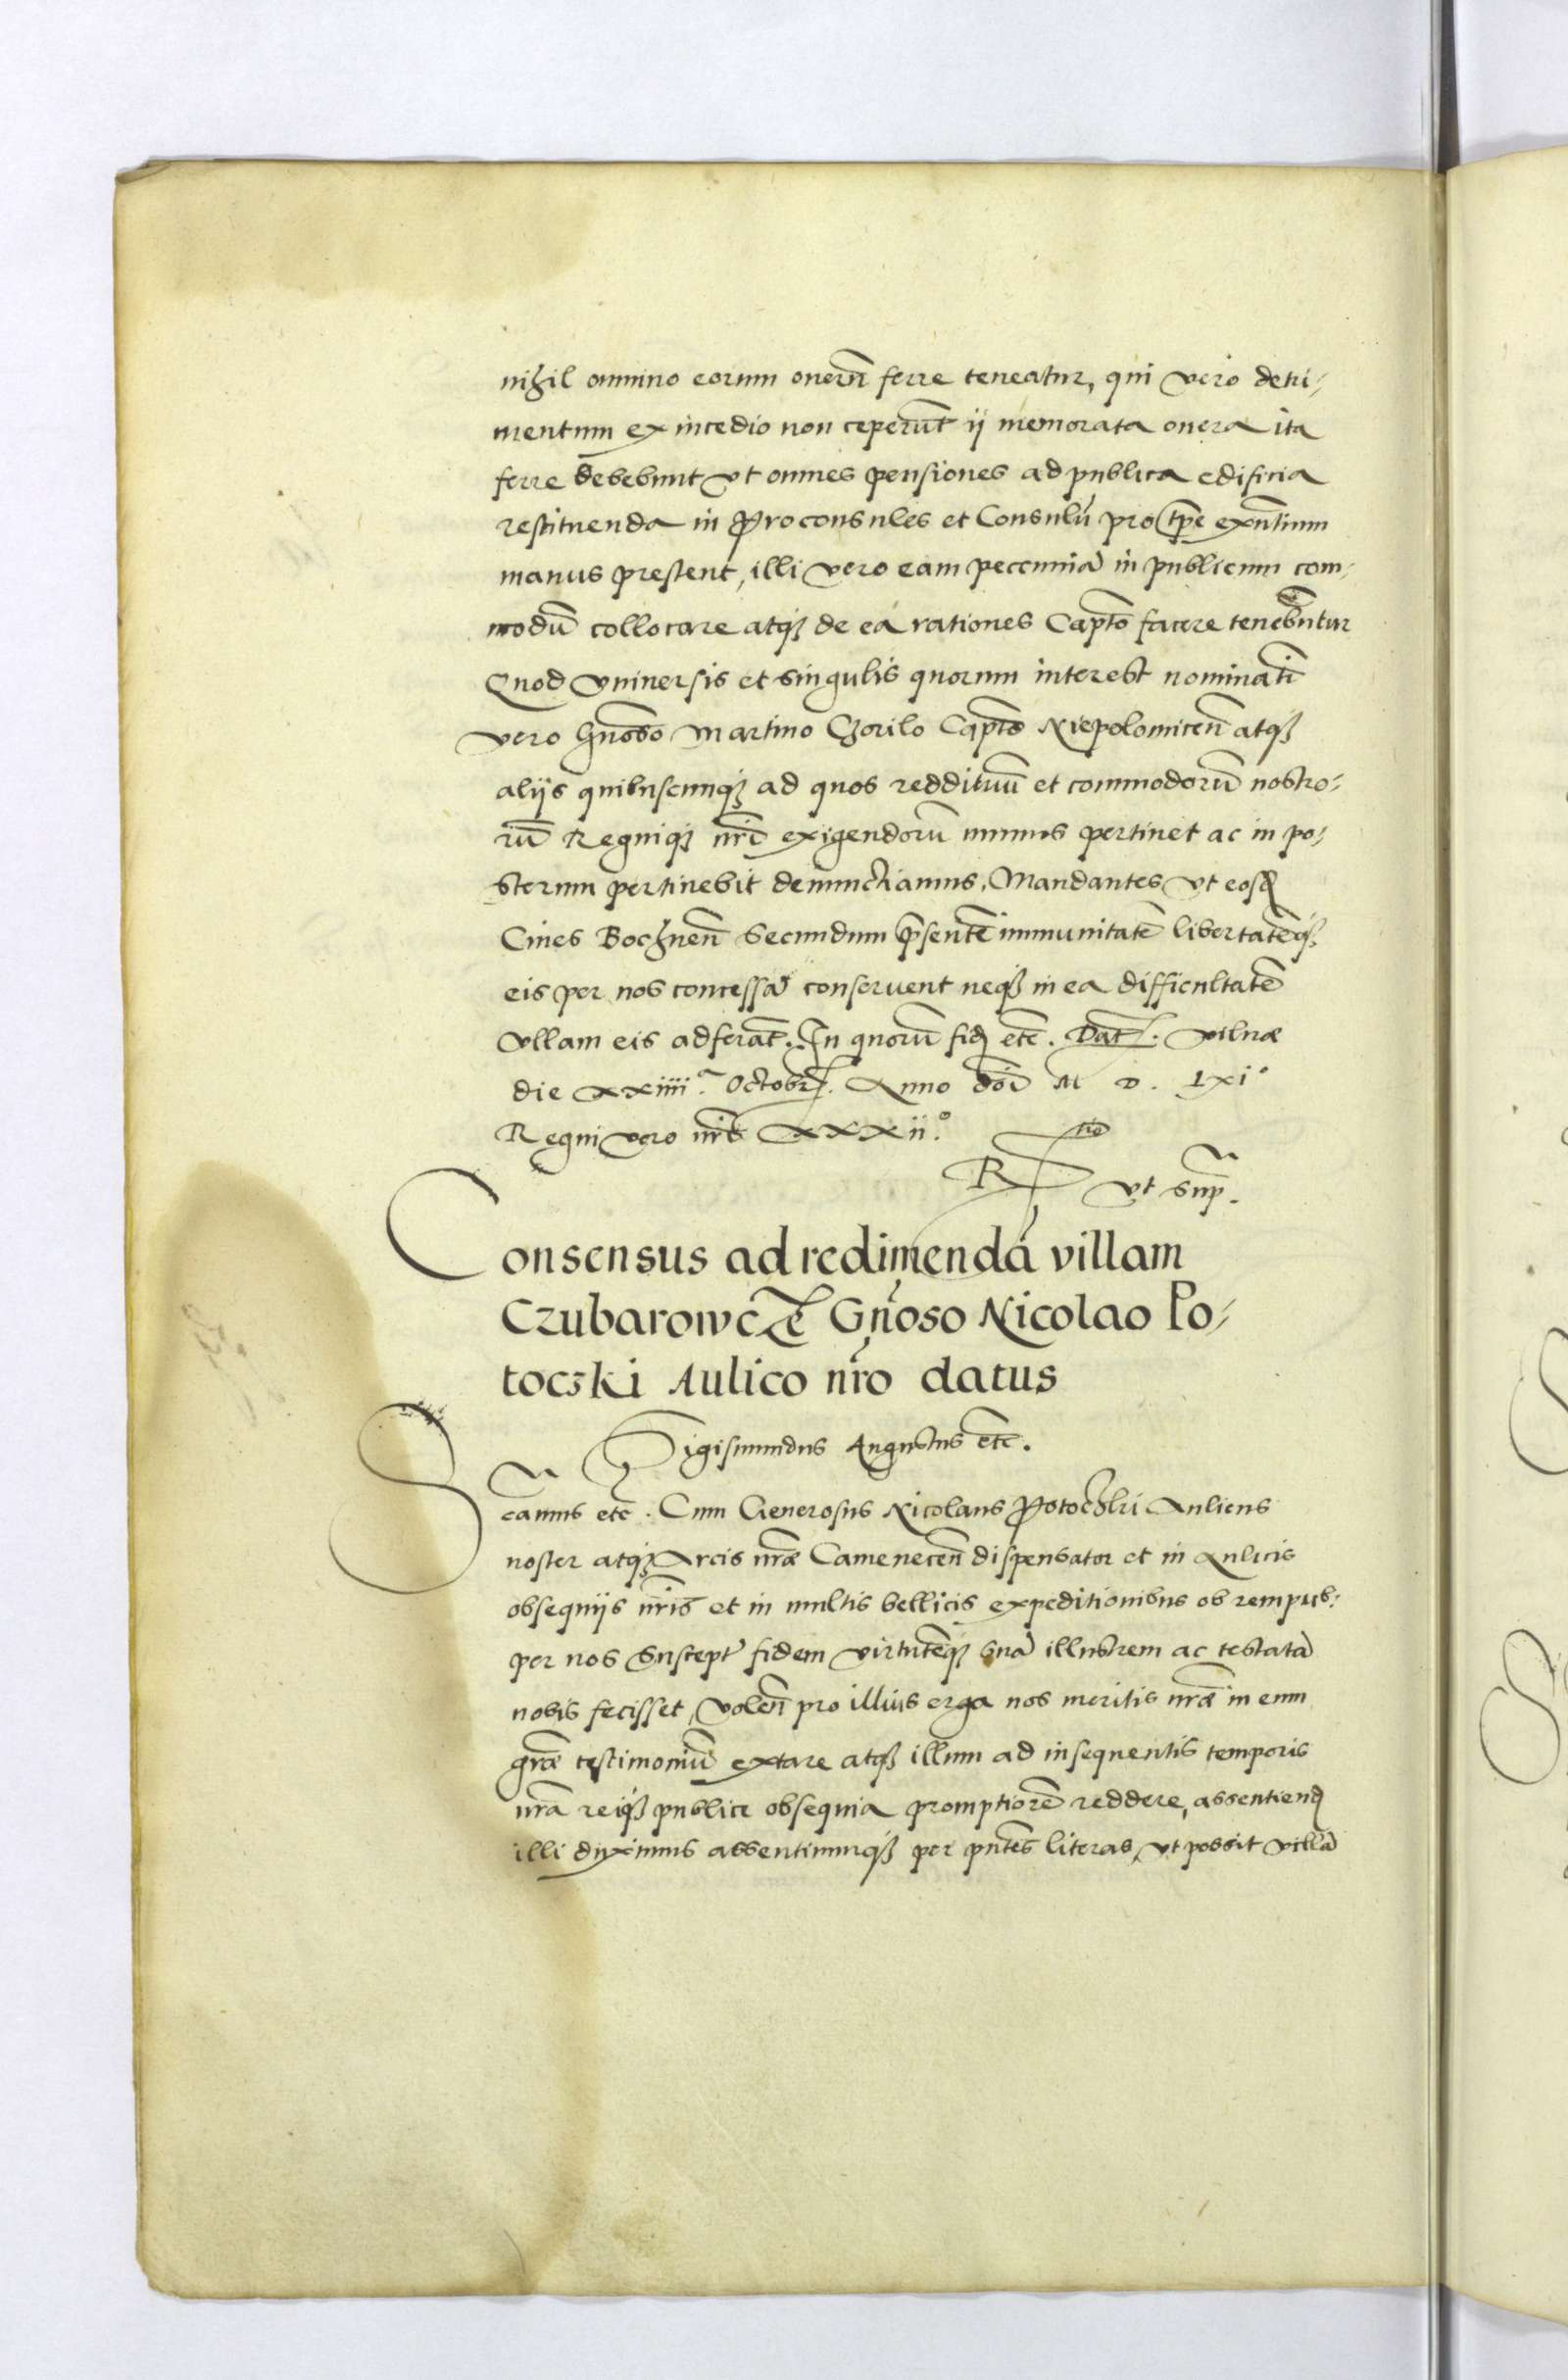 nihil omnino eorum onerū ferre teneatur, qui vero detri-
mentum ex incēdio non ceperūt ij memorata onera ita
ferre debebunt vt omnes pensiones ad publica edificia
restituenda in Proconsules et Consulū pro tp̄e exn̄tium
manus prestent, illi vero eam pecunniā in publicum com-
modū collocare atqȝ de eā rationes Capt̄o facere tenebūtur
Quod vniuersis et singulis quorum interest nominatī
vero Gn̄oso Martino Chorilo Capt̄o Niepolomicen̄ atqȝ
alijs quibuscunqȝ ad quos reddituū et commodorū nostro-
rū Regniqȝ nr̄i exigendorū munus pertinet ac in po-
sterum pertinebit denunctiamus, Mandantes vt eosd
Ciues Bochnen̄ secundum p̄sentē immunitatē libertatēqȝ
eis per nos concessā conseruent neqȝ in ea difficultatē
vllam eis adferāt. In quorū fid etc̄. Dat. vilnæ
die xxiiii.ᵃ Octobr. Anno dn̄i M D. Lxi°
Regni vero nr̄i xxxii.°
R tio vt sup̄.
Consensus ad redimendā villam
Czubarowcze Gn̄oso Nicolao Po-
toczki Aulico nr̄o datus
Sigismundus Augustus etc̄.
S
camus etc̄. Cum Generosus Nicolaus Potoczki Aulicus
noster atqȝ Arcis nr̄æ Camenecen̄ dispensator et in Aulicis
obsequijs nr̄is et in multis bellicis expeditionibus ob rempub:
per nos suscept fidem virtutēqȝ suā illustrem ac testatā
nobis fecisset, volen̄ pro illius erga nos meritis nr̄æ in eum
gr̄æ testimoniū extare atqȝ illum ad insequentis temporis
nr̄a reiqȝ publicæ obsequia promptiorē reddere, assentiend
illi duximus assentimurqȝ per pn̄tes literas, vt possit villā